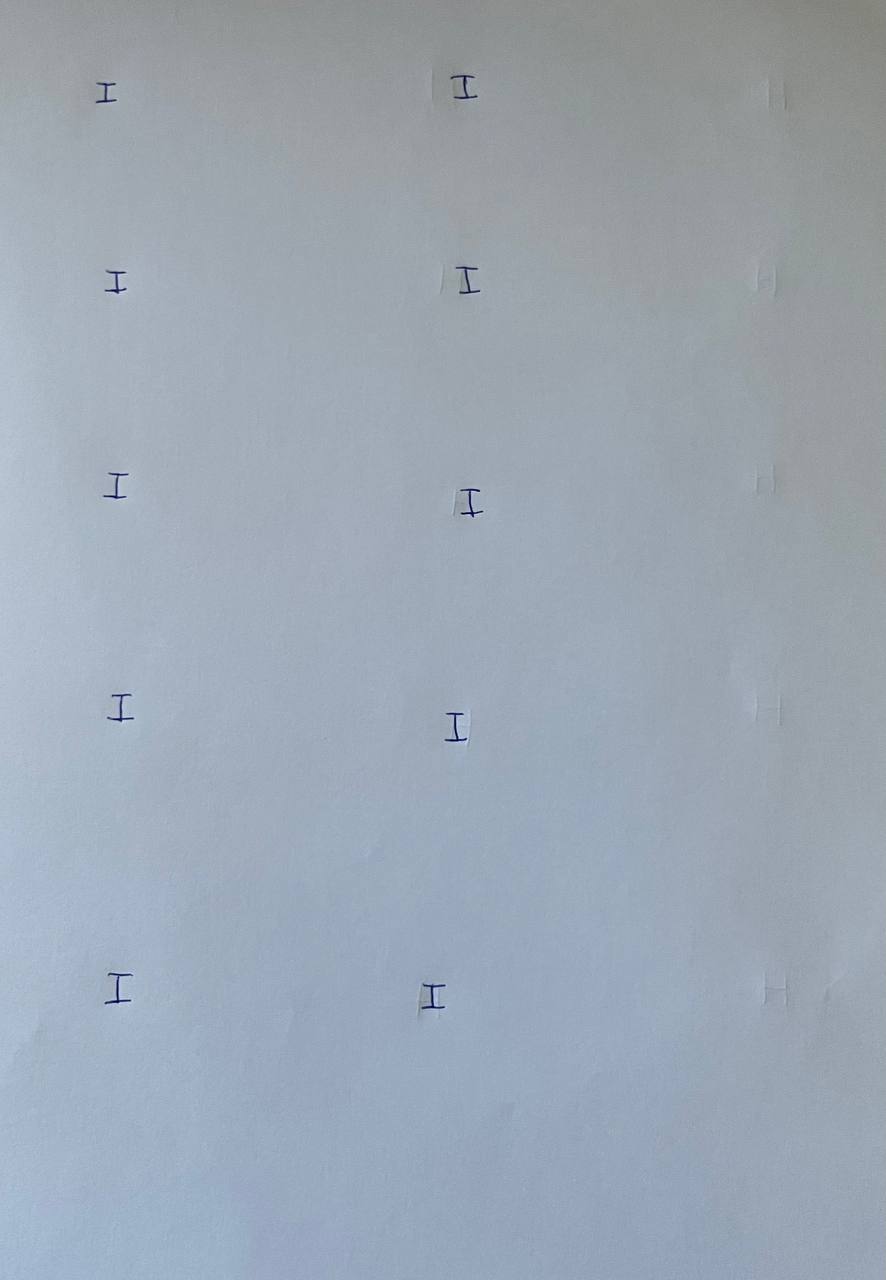 I I
I I
I I
I I
I I